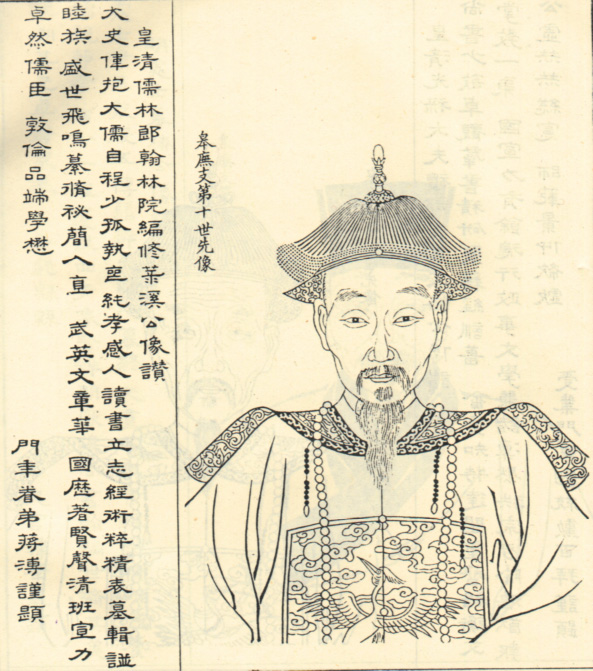 皋廡支第十世先像
皇清儒林郎翰林院編修溪公像讚
大史偉抱大儒自程少孤執喪純孝感人讀書立志經術粹精表墓輯譜
睦族 盛世飛鳴纂脩祕簡入直 武英文章華 國歷著賢聲清班宣力
卓然儒臣 敦倫品端學懋
門年眷弟蔣溥謹題